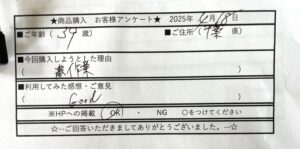 ★商品購入 お客様アンケート★ 2025年4月18日
■ご年齢( 39 歳) ■ご住所(千葉 県)
■今回購入しようとした理由
( 農作業 )
■利用してみた感想・ご意見
( Good )
※HPへの掲載 OK ・ NG ○をつけてください
☆--ご回答いただきましてありがとうございました。--☆